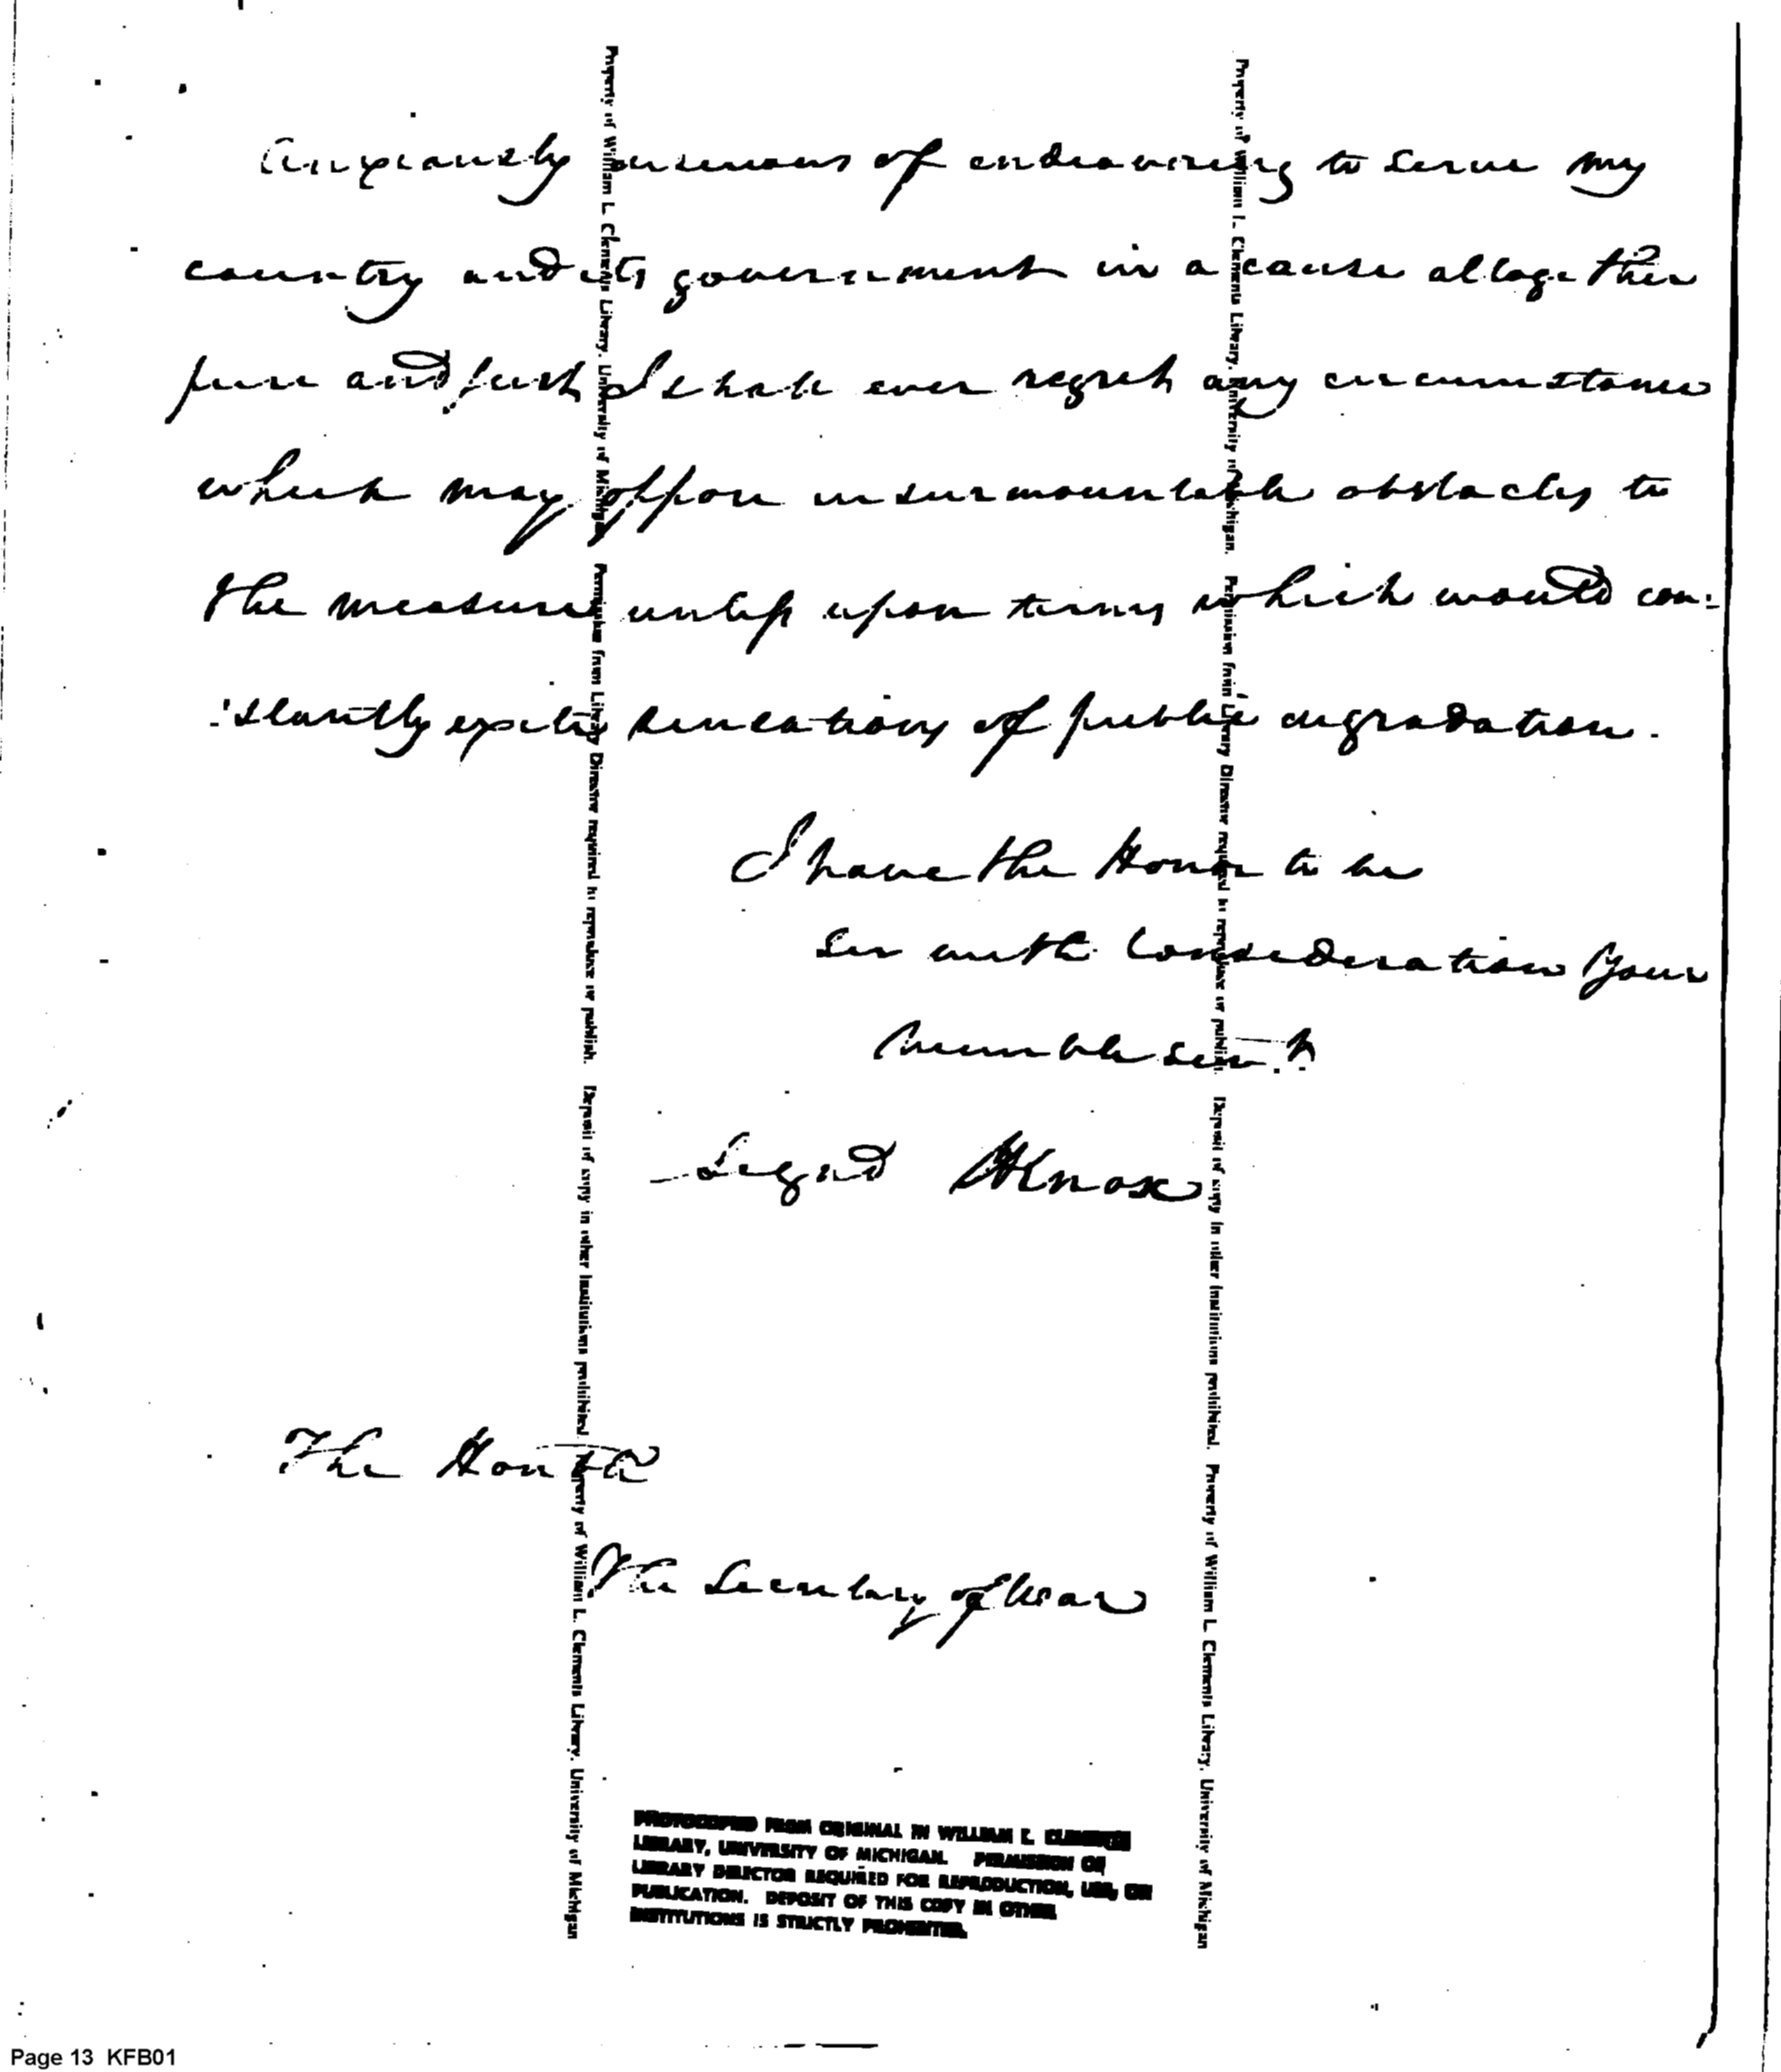 Anxiously desirous of endeavoring to serve my
country and its government in a cause altogether
pure and just, I shall ever regret any circumstance
which may oppose insurmountable obstacles to
the measure unless upon terms which would con:
:stantly excite sensations of public degradation.
I have the Honor to be
Sir with Consideration Your
humble serv.t
Signd HKnox
The Honble
The Secretary of War
PHOTOCOPIED FROM ORIGINAL IN WILLIAM L. CLEMENTS
LIBRARY, UNIVERSITY OF MICHIGAN. PERMISSION OF
LIBRARY DIRECTOR REQUIRED FOR REPRODUCTION, USE, OR
PUBLICATION. DEPOSIT OF THIS COPY IN OTHER
INSTITUTIONS IS STRICTLY PROHIBITED.
Property of William L. Clements Library, University of Michigan. Permission from Library Director required to reproduce or publish. Deposit of copy in other institutions prohibited. Property of William L. Clements Library, University of Michigan
Property of William L. Clements Library, University of Michigan. Permission from Library Director required to reproduce or publish. Deposit of copy in other institutions prohibited. Property of William L. Clements Library, University of Michigan
Page 13 KFB01